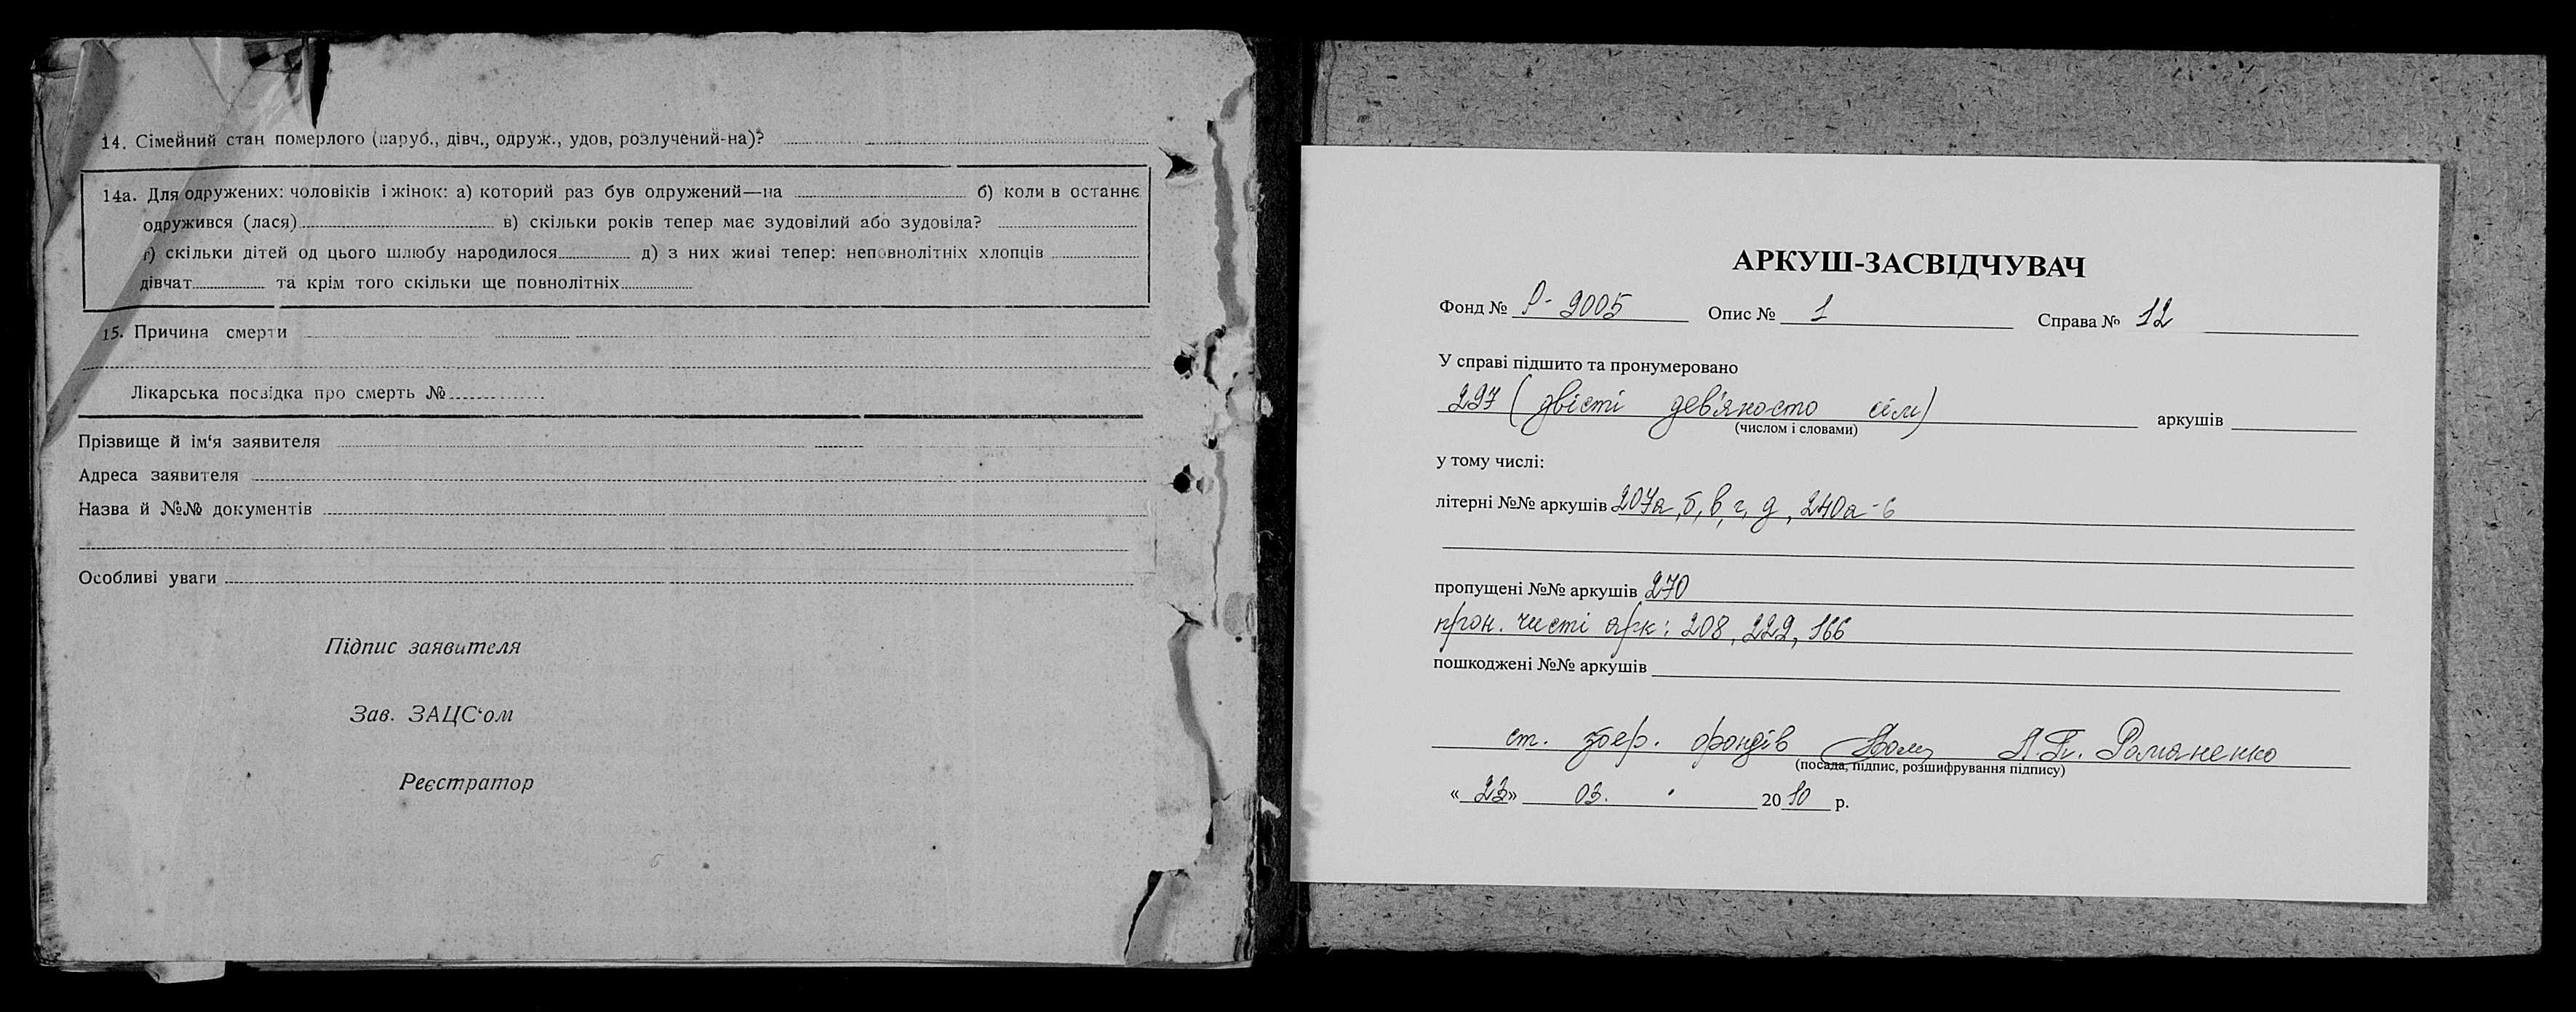 14. Сімейний стан померлого (паруб., дівч., одруж., удов, розлучений-на)?
14а. Для одружених: чоловіків і жінок: а) которий раз був одружений—на б) коли в останнє
одружився (лася) в) скільки років тепер має зудовілий або зудовіла?
г) скільки дітей од цього шлюбу народилося д) з них живі тепер: неповнолітніх хлопців
дівчат та крім того скільки ще повнолітніх
15. Причина смерти
Лікарська посвідка про смерть №
Прізвище й ім'я заявителя
Адреса заявителя
Назва й №№ документів
Особливі уваги
Підпис заявителя
Зав. ЗАЦС'ом
Реєстратор
АРКУШ-ЗАСВІДЧУВАЧ
Фонд № Р-9005 Опис № 1 Справа № 12
У справі підшито та пронумеровано
297 (двісті дев'яносто сім) аркушів
(числом і словами)
у тому числі:
літерні №№ аркушів 207а, б, в, г, д, 240а-б
пропущені №№ аркушів 270
прон. чисті арк: 208, 222, 166
пошкоджені №№ аркушів
ст. збер. фондів Романенко
(посада, підпис, розшифрування підпису)
«23» 03. 2010 р.